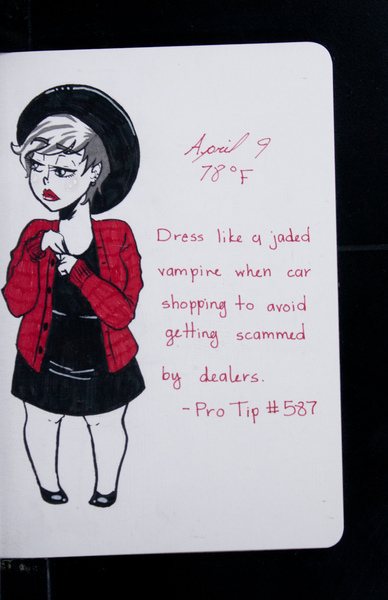 April 9
78°F
Dress like a jaded
vampire when car
shopping to avoid
getting scammed
by dealers.
- Pro Tip #587